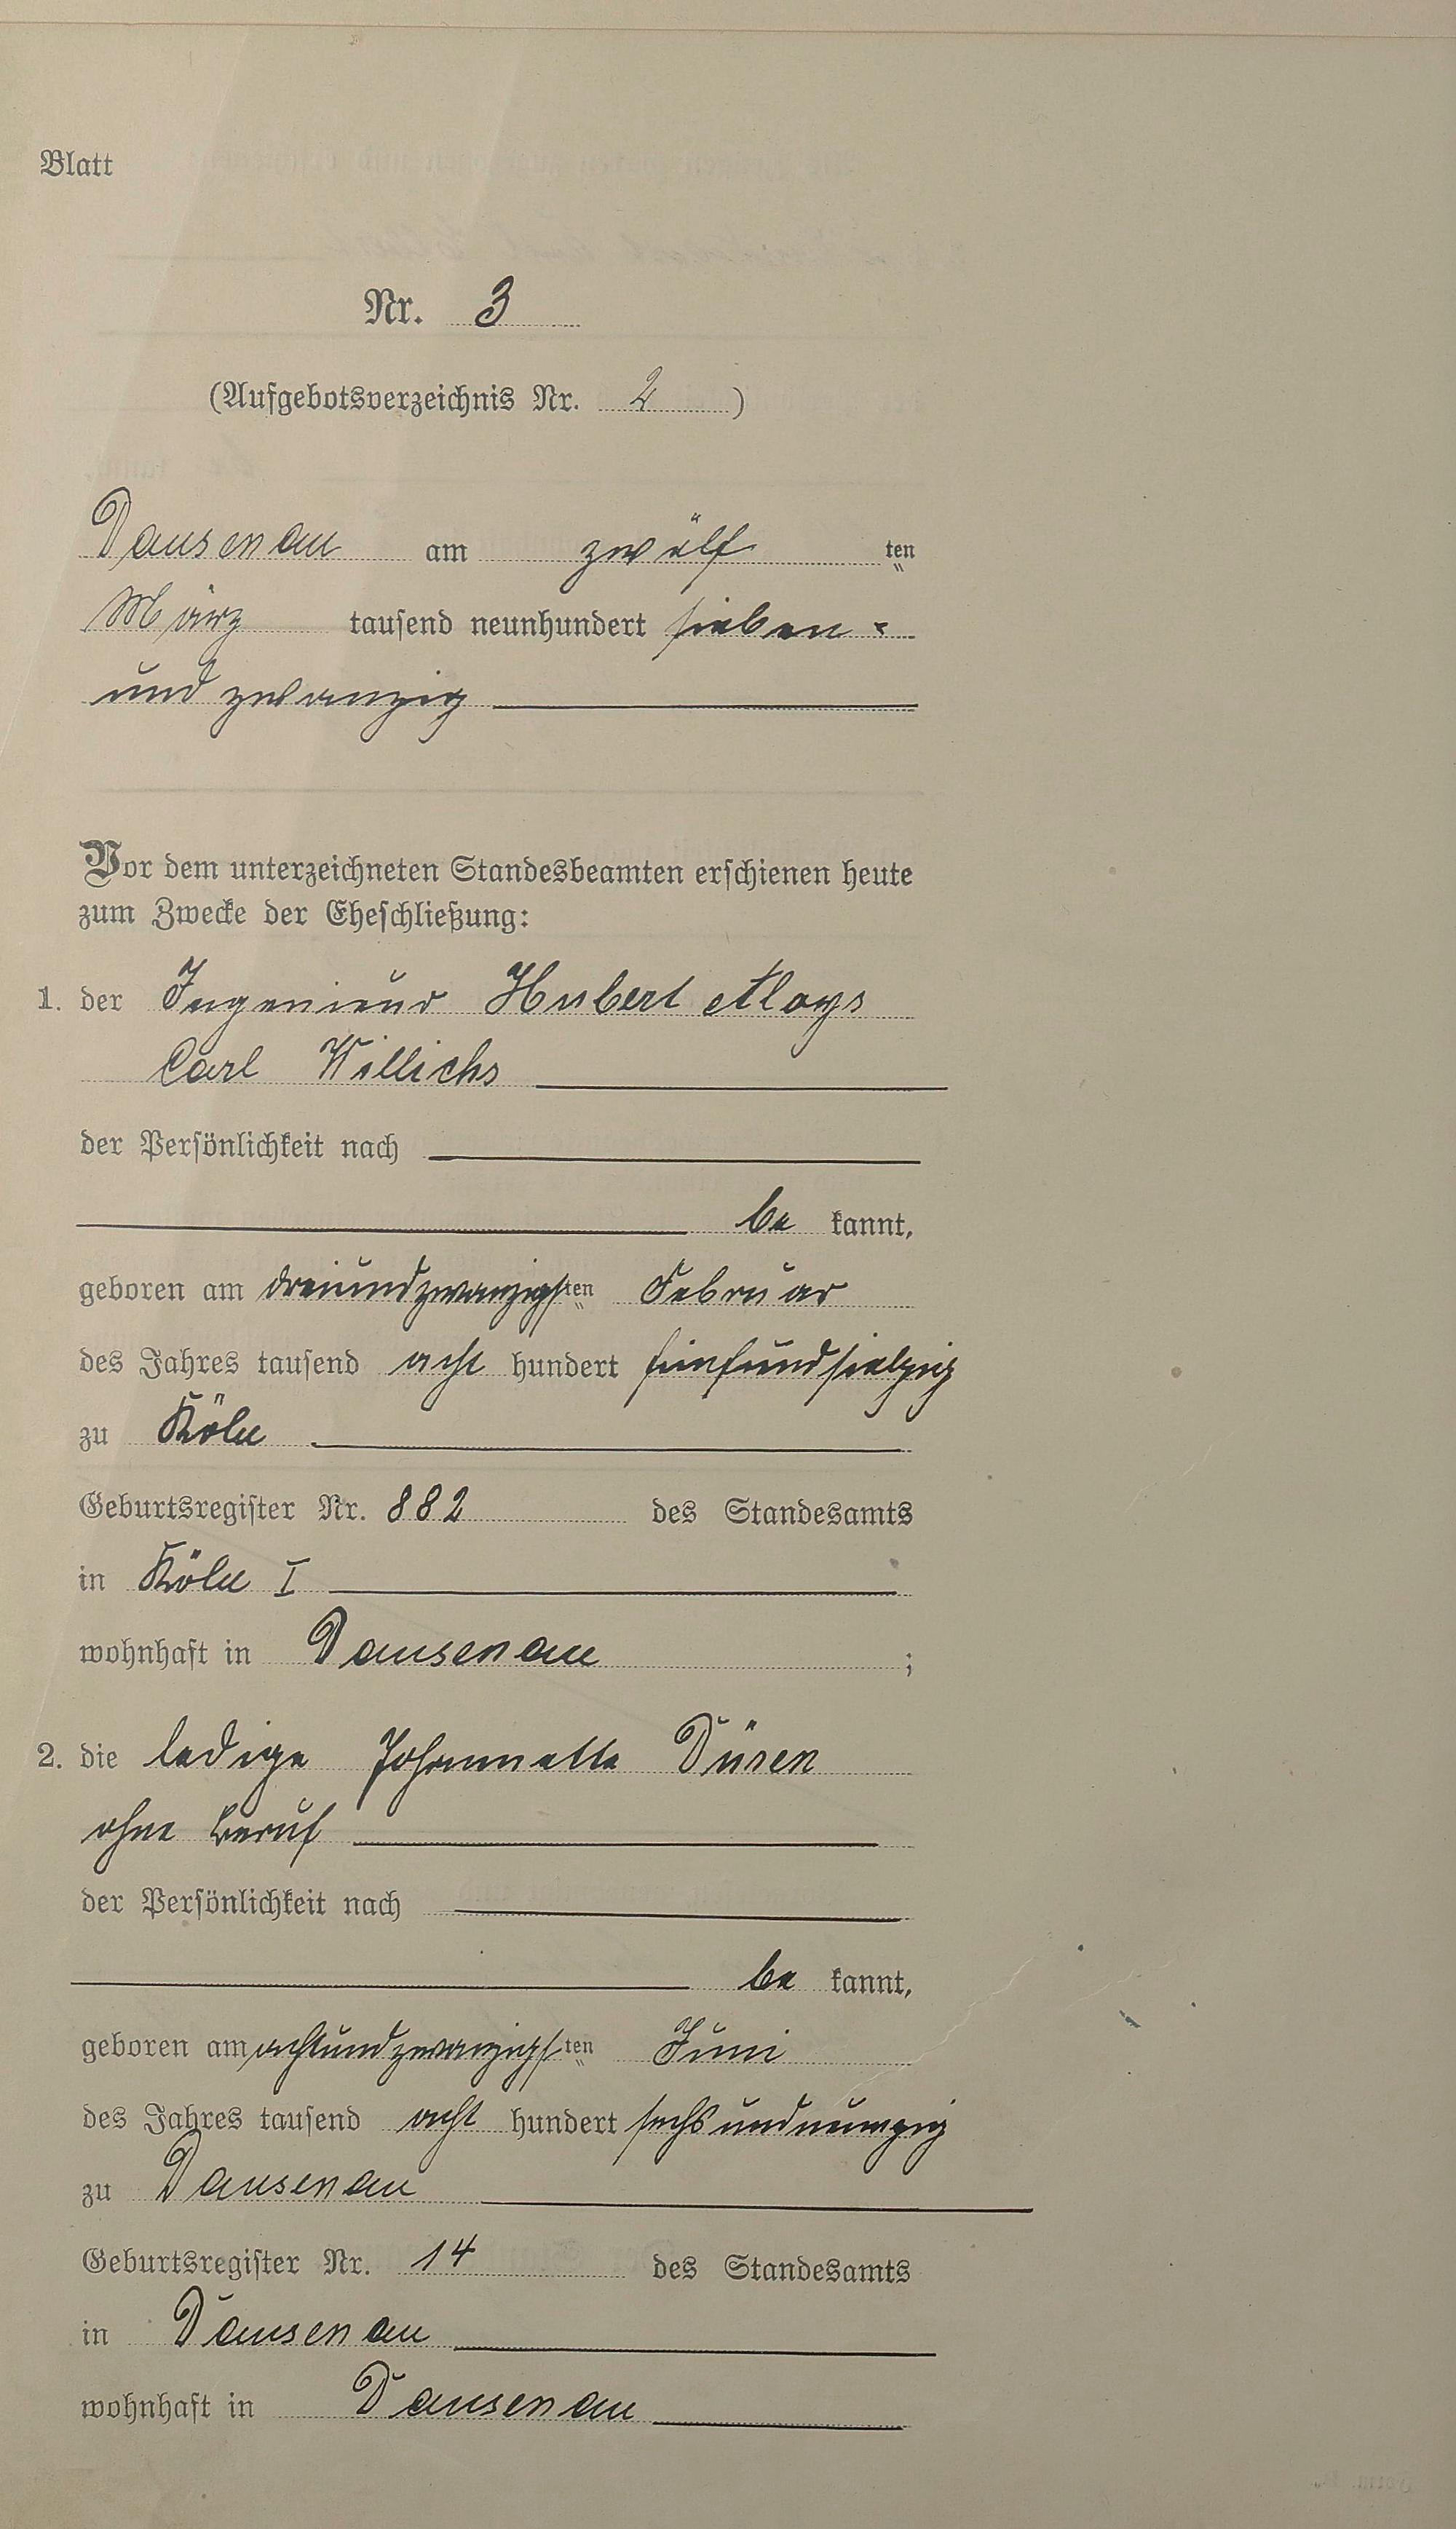 Blatt
Nr. 3
(Aufgebotsverzeichnis Nr. 2)
Dausenau am zwölf ten
März tausend neunhundert sieben-
und zwanzig
Vor dem unterzeichneten Standesbeamten erschienen heute
zum Zwecke der Eheschließung:
1. der Ingenieur Hubert Aloys
Carl Willichs
der Persönlichkeit nach
be kannt,
geboren am dreiundzwanzigsten Februar
des Jahres tausend acht hundert fünfundsiebzig
zu Köln
Geburtsregister Nr. 882 des Standesamts
in Köln I
wohnhaft in Dausenau ;
2. die ledige Johannette Düren
ohne Beruf
der Persönlichkeit nach
be kannt,
geboren am achtundzwanzigsten Juni
des Jahres tausend acht hundert sechsundneunzig
zu Dausenau
Geburtsregister Nr. 14 des Standesamts
in Dausenau
wohnhaft in Dausenau